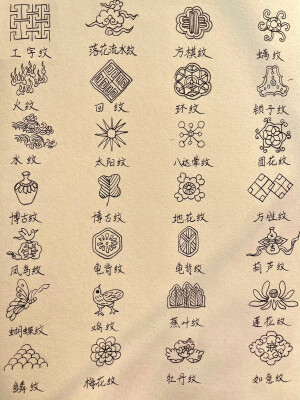 工字纹 落花流水纹 方棋纹 螭纹
火纹 回纹 环纹 锁子纹
水纹 太阳纹 八达晕纹 团花纹
博古纹 博古纹 地花纹 方胜纹
凤鸟纹 龟背纹 龟背纹 葫芦纹
蝴蝶纹 鸡纹 蕉叶纹 莲花纹
鳞纹 梅花纹 牡丹纹 如意纹